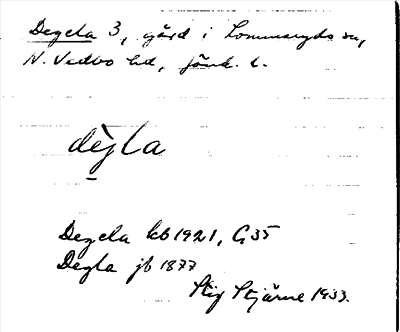 Degela 3, gård i Lommaryds sn,
N. Vedbo hd, Jönk. l.
dègla
Degela kb 1921, G35
Degla jb 1877
Stig Stjärne 1933.